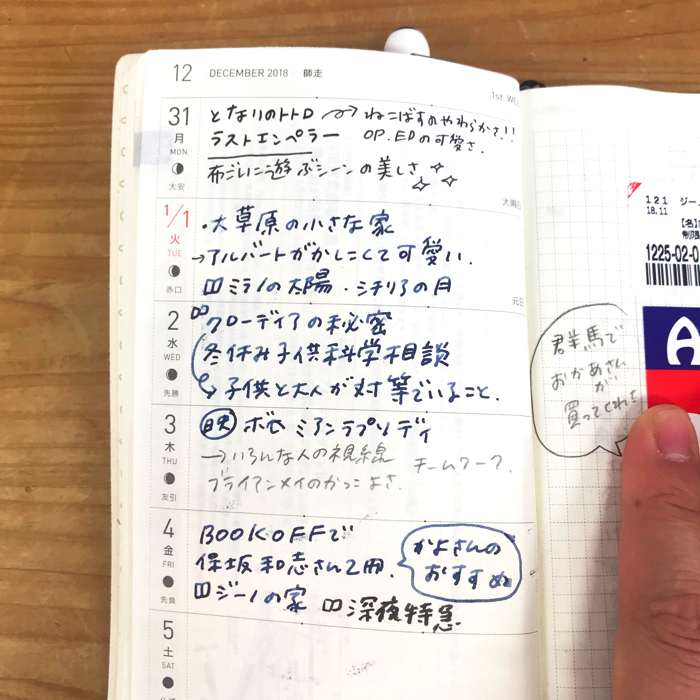 12 DECEMBER 2018 師走
1st WE
31 月 MON 大安
となりのトトロ → ねこばすのやわらかさ!!
ラストエンペラー OP.EDの可愛さ.
布ごしに遊ぶシーンの美しさ
大晦日
1/1 火 TUE 赤口
・大草原の小さな家
→アルバートがかしこくて可愛い.
ミラノの太陽・シチリアの月
元日
2 水 WED 先勝
クローディアの秘密
冬休み子供科学相談
→子供と大人が対等でいること.
3 木 THU 友引
映 ボヘミアンラプソディ
→いろんな人の視線 チームワーク.
ブライアンメイのかっこよさ.
4 金 FRI 先負
BOOKOFFで
保坂和志さん2冊.
かよさんの
おすすめ
ジーノの家 深夜特急
5 土 SAT
121 ジー
18.11
制限
1225-02-0
A
群馬で
おかあさん
が
買ってくれた